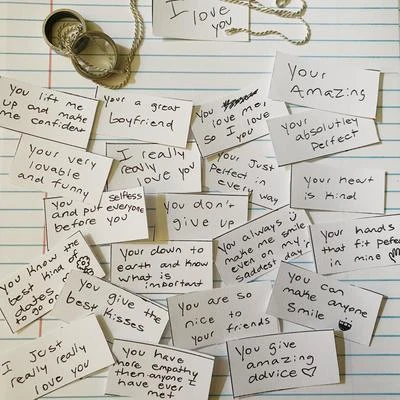 I love
you
Your
Amazing
You lift me
up and make
me confident
Your a great
boyfriend
You
love me,
so I love
you
Your
absolutley
Perfect
Your very
lovable
and funny
I really
really
love you
Your Just
Perfect in
every way
Your heart
is kind
You selfless
and put everyone
before you
You don't
give up
You always
make me smile
even on my
saddest day
Your hands
that fit pefect
in mine
You know the
best kind of
dates
to go on
Your down to
earth and know
what is
important
You can
make anyone
Smile
You give the
best kisses
You are so
nice to
your friends
I Just
really really
love you
You have
more empathy
then anyone I
have ever
met
You give
amazing
advice